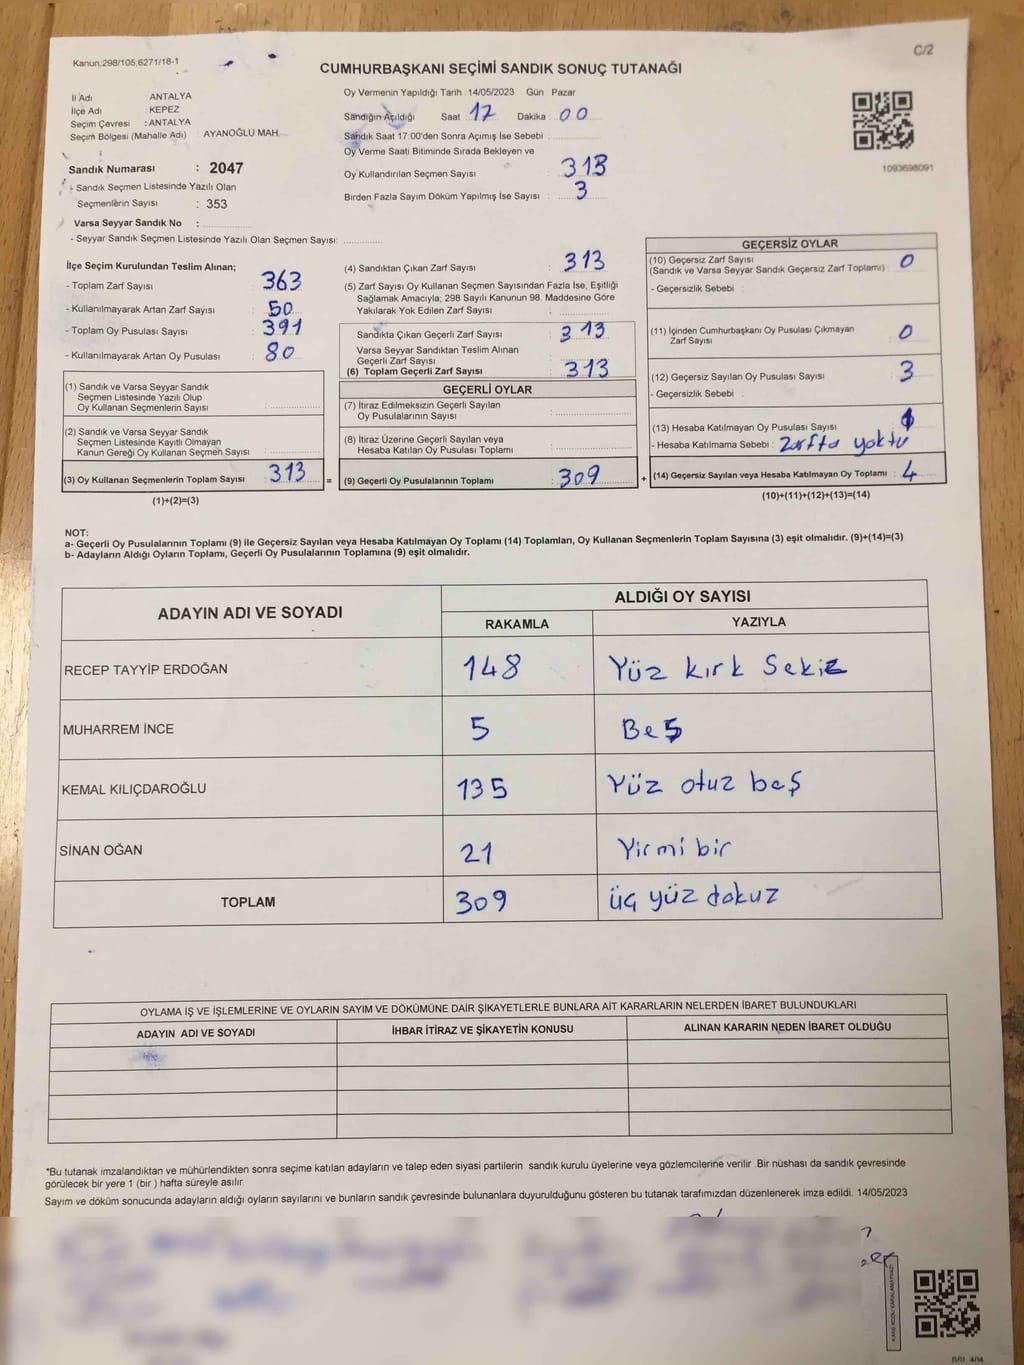 C/2
Kanun;298/105;6271/18-1
CUMHURBAŞKANI SEÇİMİ SANDIK SONUÇ TUTANAĞI
İl Adı ANTALYA
İlçe Adı KEPEZ
Seçim Çevresi : ANTALYA
Seçim Bölgesi (Mahalle Adı) AYANOĞLU MAH.
Sandık Numarası : 2047
- Sandık Seçmen Listesinde Yazılı Olan
Seçmenlerin Sayısı : 353
Varsa Seyyar Sandık No :
- Seyyar Sandık Seçmen Listesinde Yazılı Olan Seçmen Sayısı:
Oy Vermenin Yapıldığı Tarih :14/05/2023 Gün Pazar
Sandığın Açıldığı Saat 17 Dakika : 00
Sandık Saat 17:00'den Sonra Açımış İse Sebebi
Oy Verme Saati Bitiminde Sırada Bekleyen ve
Oy Kullandırılan Seçmen Sayısı : 313
Birden Fazla Sayım Döküm Yapılmış İse Sayısı : 3
1093698091
İlçe Seçim Kurulundan Teslim Alınan;
- Toplam Zarf Sayısı : 363
- Kullanılmayarak Artan Zarf Sayısı : 50
- Toplam Oy Pusulası Sayısı : 391
- Kullanılmayarak Artan Oy Pusulası : 80
(1) Sandık ve Varsa Seyyar Sandık
Seçmen Listesinde Yazılı Olup
Oy Kullanan Seçmenlerin Sayısı :
(2) Sandık ve Varsa Seyyar Sandık
Seçmen Listesinde Kayıtlı Olmayan
Kanun Gereği Oy Kullanan Seçmen Sayısı :
(3) Oy Kullanan Seçmenlerin Toplam Sayısı : 313
(1)+(2)=(3)
=
(4) Sandıktan Çıkan Zarf Sayısı : 313
(5) Zarf Sayısı Oy Kullanan Seçmen Sayısından Fazla İse, Eşitliği
Sağlamak Amacıyla; 298 Sayılı Kanunun 98. Maddesine Göre
Yakılarak Yok Edilen Zarf Sayısı :
Sandıkta Çıkan Geçerli Zarf Sayısı : 313
Varsa Seyyar Sandıktan Teslim Alınan
Geçerli Zarf Sayısı
(6) Toplam Geçerli Zarf Sayısı : 313
GEÇERLİ OYLAR
(7) İtiraz Edilmeksizin Geçerli Sayılan
Oy Pusulalarının Sayısı :
(8) İtiraz Üzerine Geçerli Sayılan veya
Hesaba Katılan Oy Pusulası Toplamı :
(9) Geçerli Oy Pusulalarının Toplamı : 309
+
GEÇERSİZ OYLAR
(10) Geçersiz Zarf Sayısı
(Sandık ve Varsa Seyyar Sandık Geçersiz Zarf Toplamı) : 0
- Geçersizlik Sebebi :
(11) İçinden Cumhurbaşkanı Oy Pusulası Çıkmayan
Zarf Sayısı : 0
(12) Geçersiz Sayılan Oy Pusulası Sayısı : 3
- Geçersizlik Sebebi :
(13) Hesaba Katılmayan Oy Pusulası Sayısı :
- Hesaba Katılmama Sebebi : Zarfta yoktu
(14) Geçersiz Sayılan veya Hesaba Katılmayan Oy Toplamı : 4
(10)+(11)+(12)+(13)=(14)
NOT:
a- Geçerli Oy Pusulalarının Toplamı (9) ile Geçersiz Sayılan veya Hesaba Katılmayan Oy Toplamı (14) Toplamları, Oy Kullanan Seçmenlerin Toplam Sayısına (3) eşit olmalıdır. (9)+(14)=(3)
b- Adayların Aldığı Oyların Toplamı, Geçerli Oy Pusulalarının Toplamına (9) eşit olmalıdır.
ADAYIN ADI VE SOYADI ALDIĞI OY SAYISI
RAKAMLA YAZIYLA
RECEP TAYYİP ERDOĞAN 148 Yüz kırk Sekiz
MUHARREM İNCE 5 Beş
KEMAL KILIÇDAROĞLU 135 Yüz otuz beş
SİNAN OĞAN 21 Yirmi bir
TOPLAM 309 üç yüz dokuz
OYLAMA İŞ VE İŞLEMLERİNE VE OYLARIN SAYIM VE DÖKÜMÜNE DAİR ŞİKAYETLERLE BUNLARA AİT KARARLARIN NELERDEN İBARET BULUNDUKLARI
ADAYIN ADI VE SOYADI İHBAR İTİRAZ VE ŞİKAYETİN KONUSU ALINAN KARARIN NEDEN İBARET OLDUĞU
*Bu tutanak imzalandıktan ve mühürlendikten sonra seçime katılan adayların ve talep eden siyasi partilerin sandık kurulu üyelerine veya gözlemcilerine verilir. Bir nüshası da sandık çevresinde
görülecek bir yere 1 (bir ) hafta süreyle asılır.
Sayım ve döküm sonucunda adayların aldığı oyların sayılarını ve bunların sandık çevresinde bulunanlara duyurulduğunu gösteren bu tutanak tarafımızdan düzenlenerek imza edildi. 14/05/2023